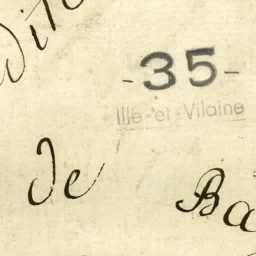 dite
- 35 -
Ille-et-Vilaine
de Ba